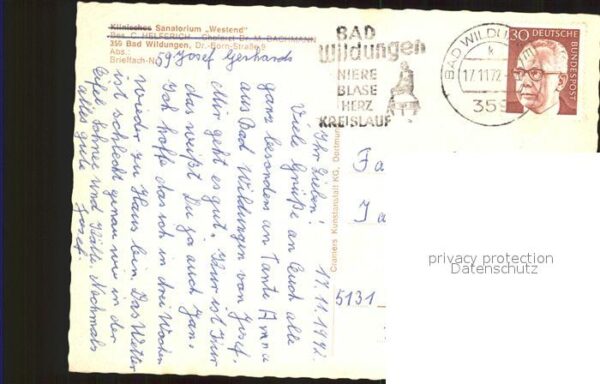 Klinisches Sanatorium „Westend"
Bes. C. HELFERICH - Chefarzt Dr. M. BACHMANN
359 Bad Wildungen, Dr.-Born-Straße 9
Abs.:
Brieffach-Nr. 59 Josef Gerhards
BAD
Wildungen
NIERE
BLASE
HERZ
KREISLAUF
BAD WILDU
k
17.11.72
359
30
DEUTSCHE
BUNDESPOST
17.11.1972.
Ihr Lieben!
Viele Grüße an Euch alle
ganz besonders an Tante Anna
aus Bad Wildungen von Josef.
Mir geht es gut. Kur ist Kur
das weißt Du ja auch Jans.
Ich hoffe das ich in drei Wochen
wieder zu Haus bin. Das Wetter
ist schlecht genau wie in der
Eifel Schnee und Kälte. Nochmals
alles gute Josef.
Cramers Kunstanstalt KG, Dortmund
Fa
Ja
5131
privacy protection
Datenschutz